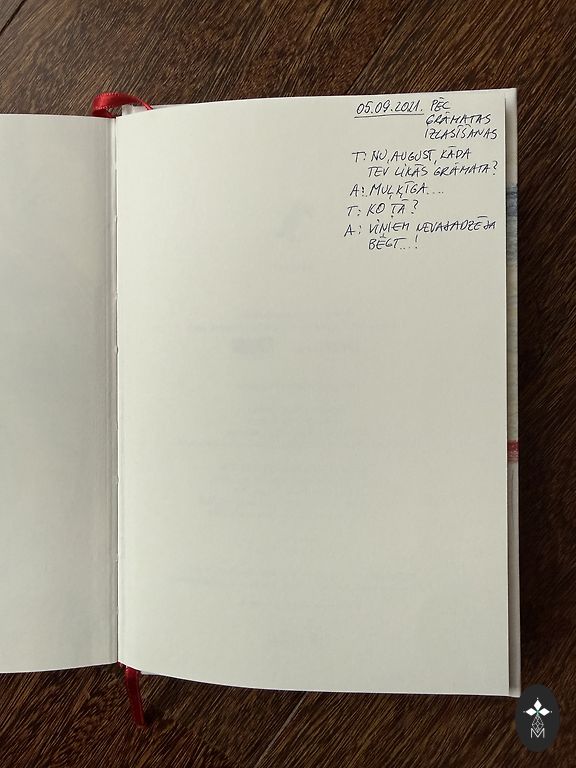 05.09.2021. PĒC
GRĀMATAS
IZLASĪŠANAS
T: NU, AUGUST, KĀDA
TEV LIKĀS GRĀMATA?
A: MUĻĶĪGA....
T: KO TĀ?
A: VIŅIEM NEVAJADZĒJA
BĒGT...!
M